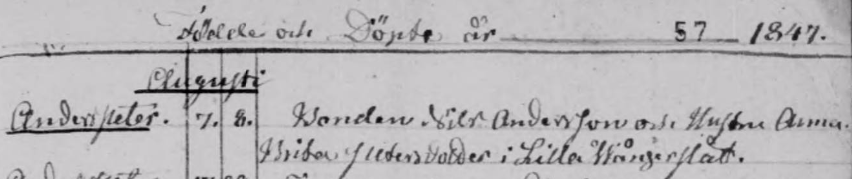 Födde och Döpte år 57 1847.
Augusti
Anders Peter. 7. 8. Bonden Nils Andersson och Hustru Anna
Brita Petersdotter i Lilla Wångerslät.